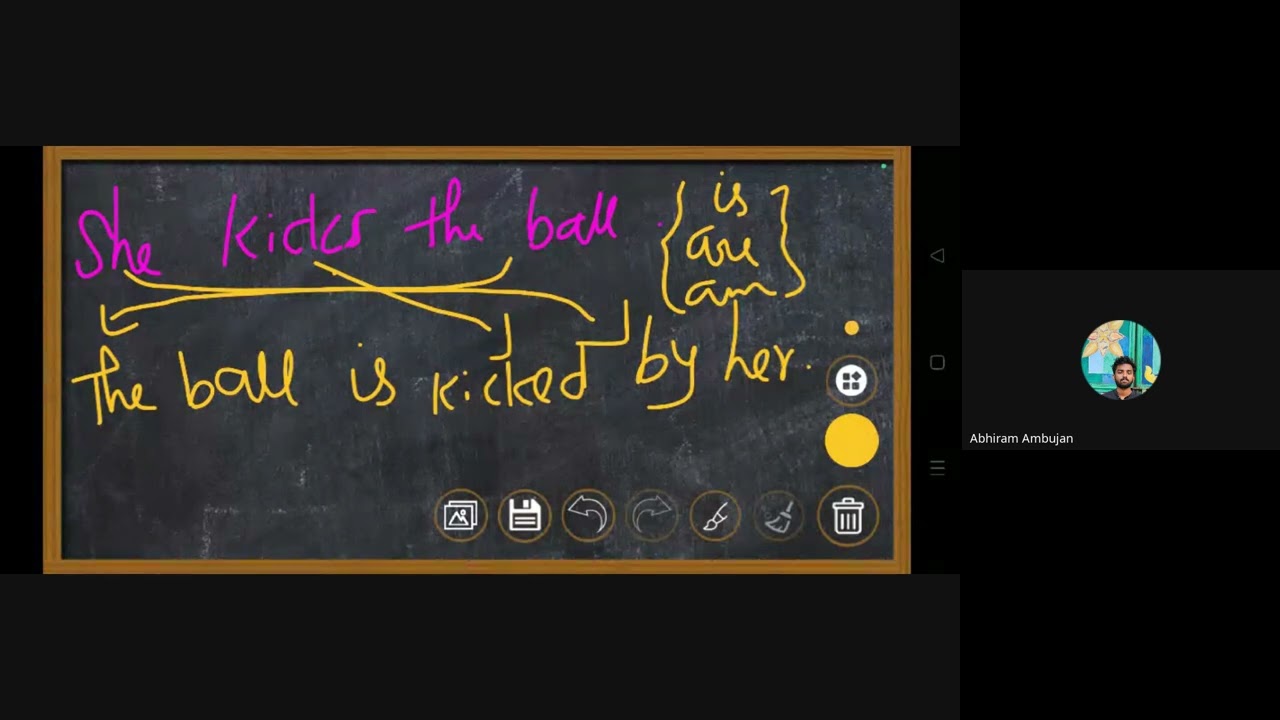 She kicks the ball .
{ is
are
am }
The ball is kicked by her.
Abhiram Ambujan